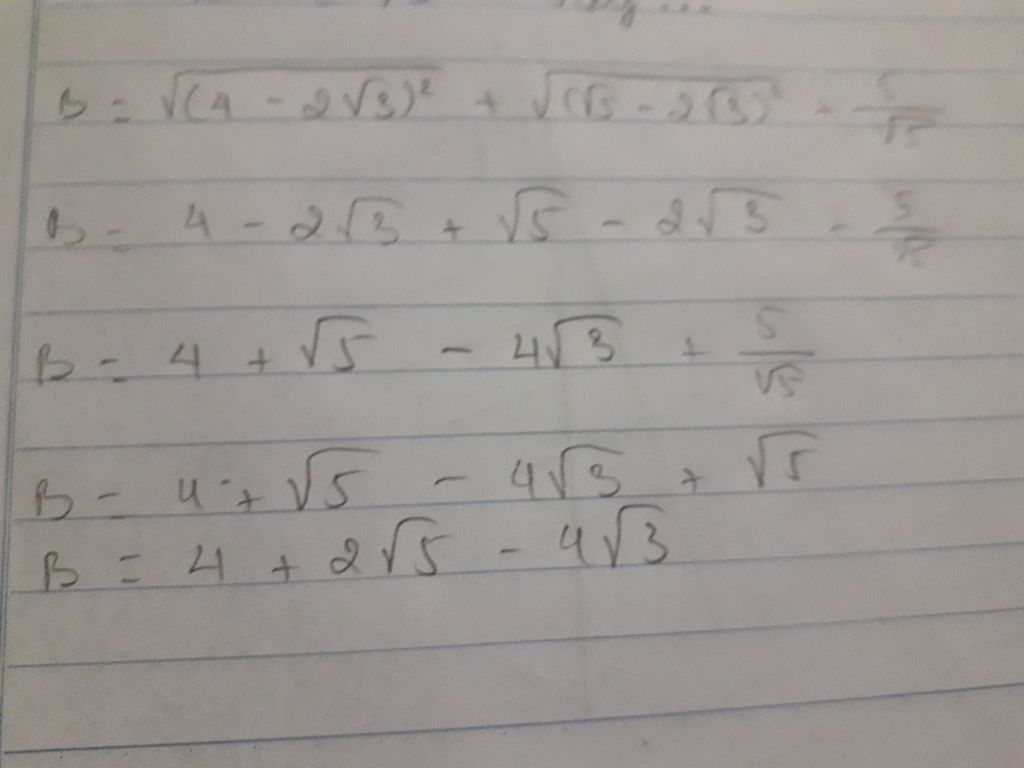 B = √(4 - 2√3)² + √(√5 - 2√3)² - 5/√5
B = 4 - 2√3 + √5 - 2√3 - 5/√5
B = 4 + √5 - 4√3 + 5/√5
B = 4 + √5 - 4√3 + √5
B = 4 + 2√5 - 4√3